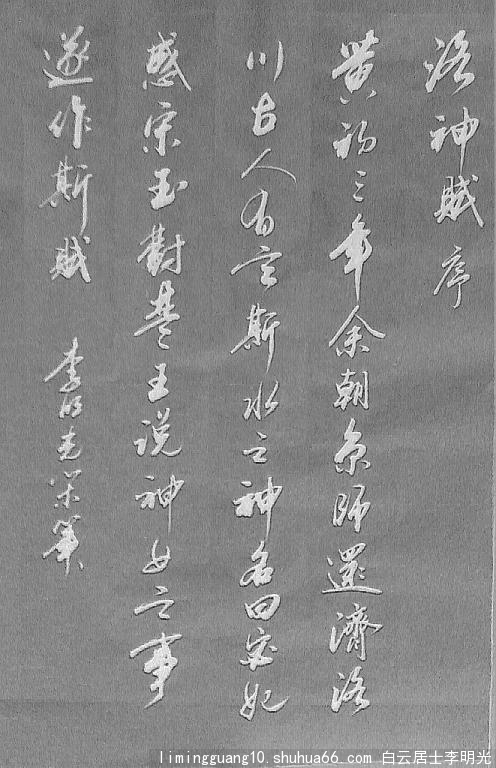 洛神賦序
黄初三年余朝京師還濟洛
川古人有言斯水之神名曰宓妃
感宋玉對楚王说神女之事
遂作斯賦
李明光 筆
limingguang10.shuhua66.com 白云居士李明光